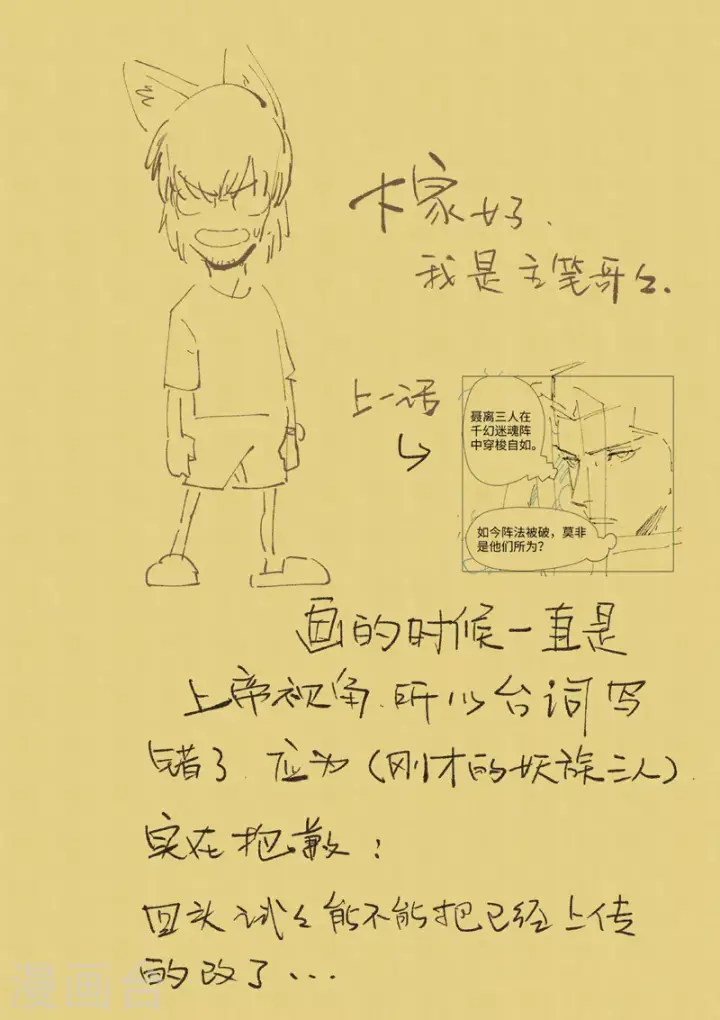 大家好.
我是主笔哥么.
上一话
聂离三人在
千幻迷魂阵
中穿梭自如。
如今阵法被破，莫非
是他们所为？
画的时候一直是
上帝视角.所以台词写
错了.应为(刚才的妖族三人).
实在抱歉:
回头试々能不能把已经上传
的改了...
漫画台